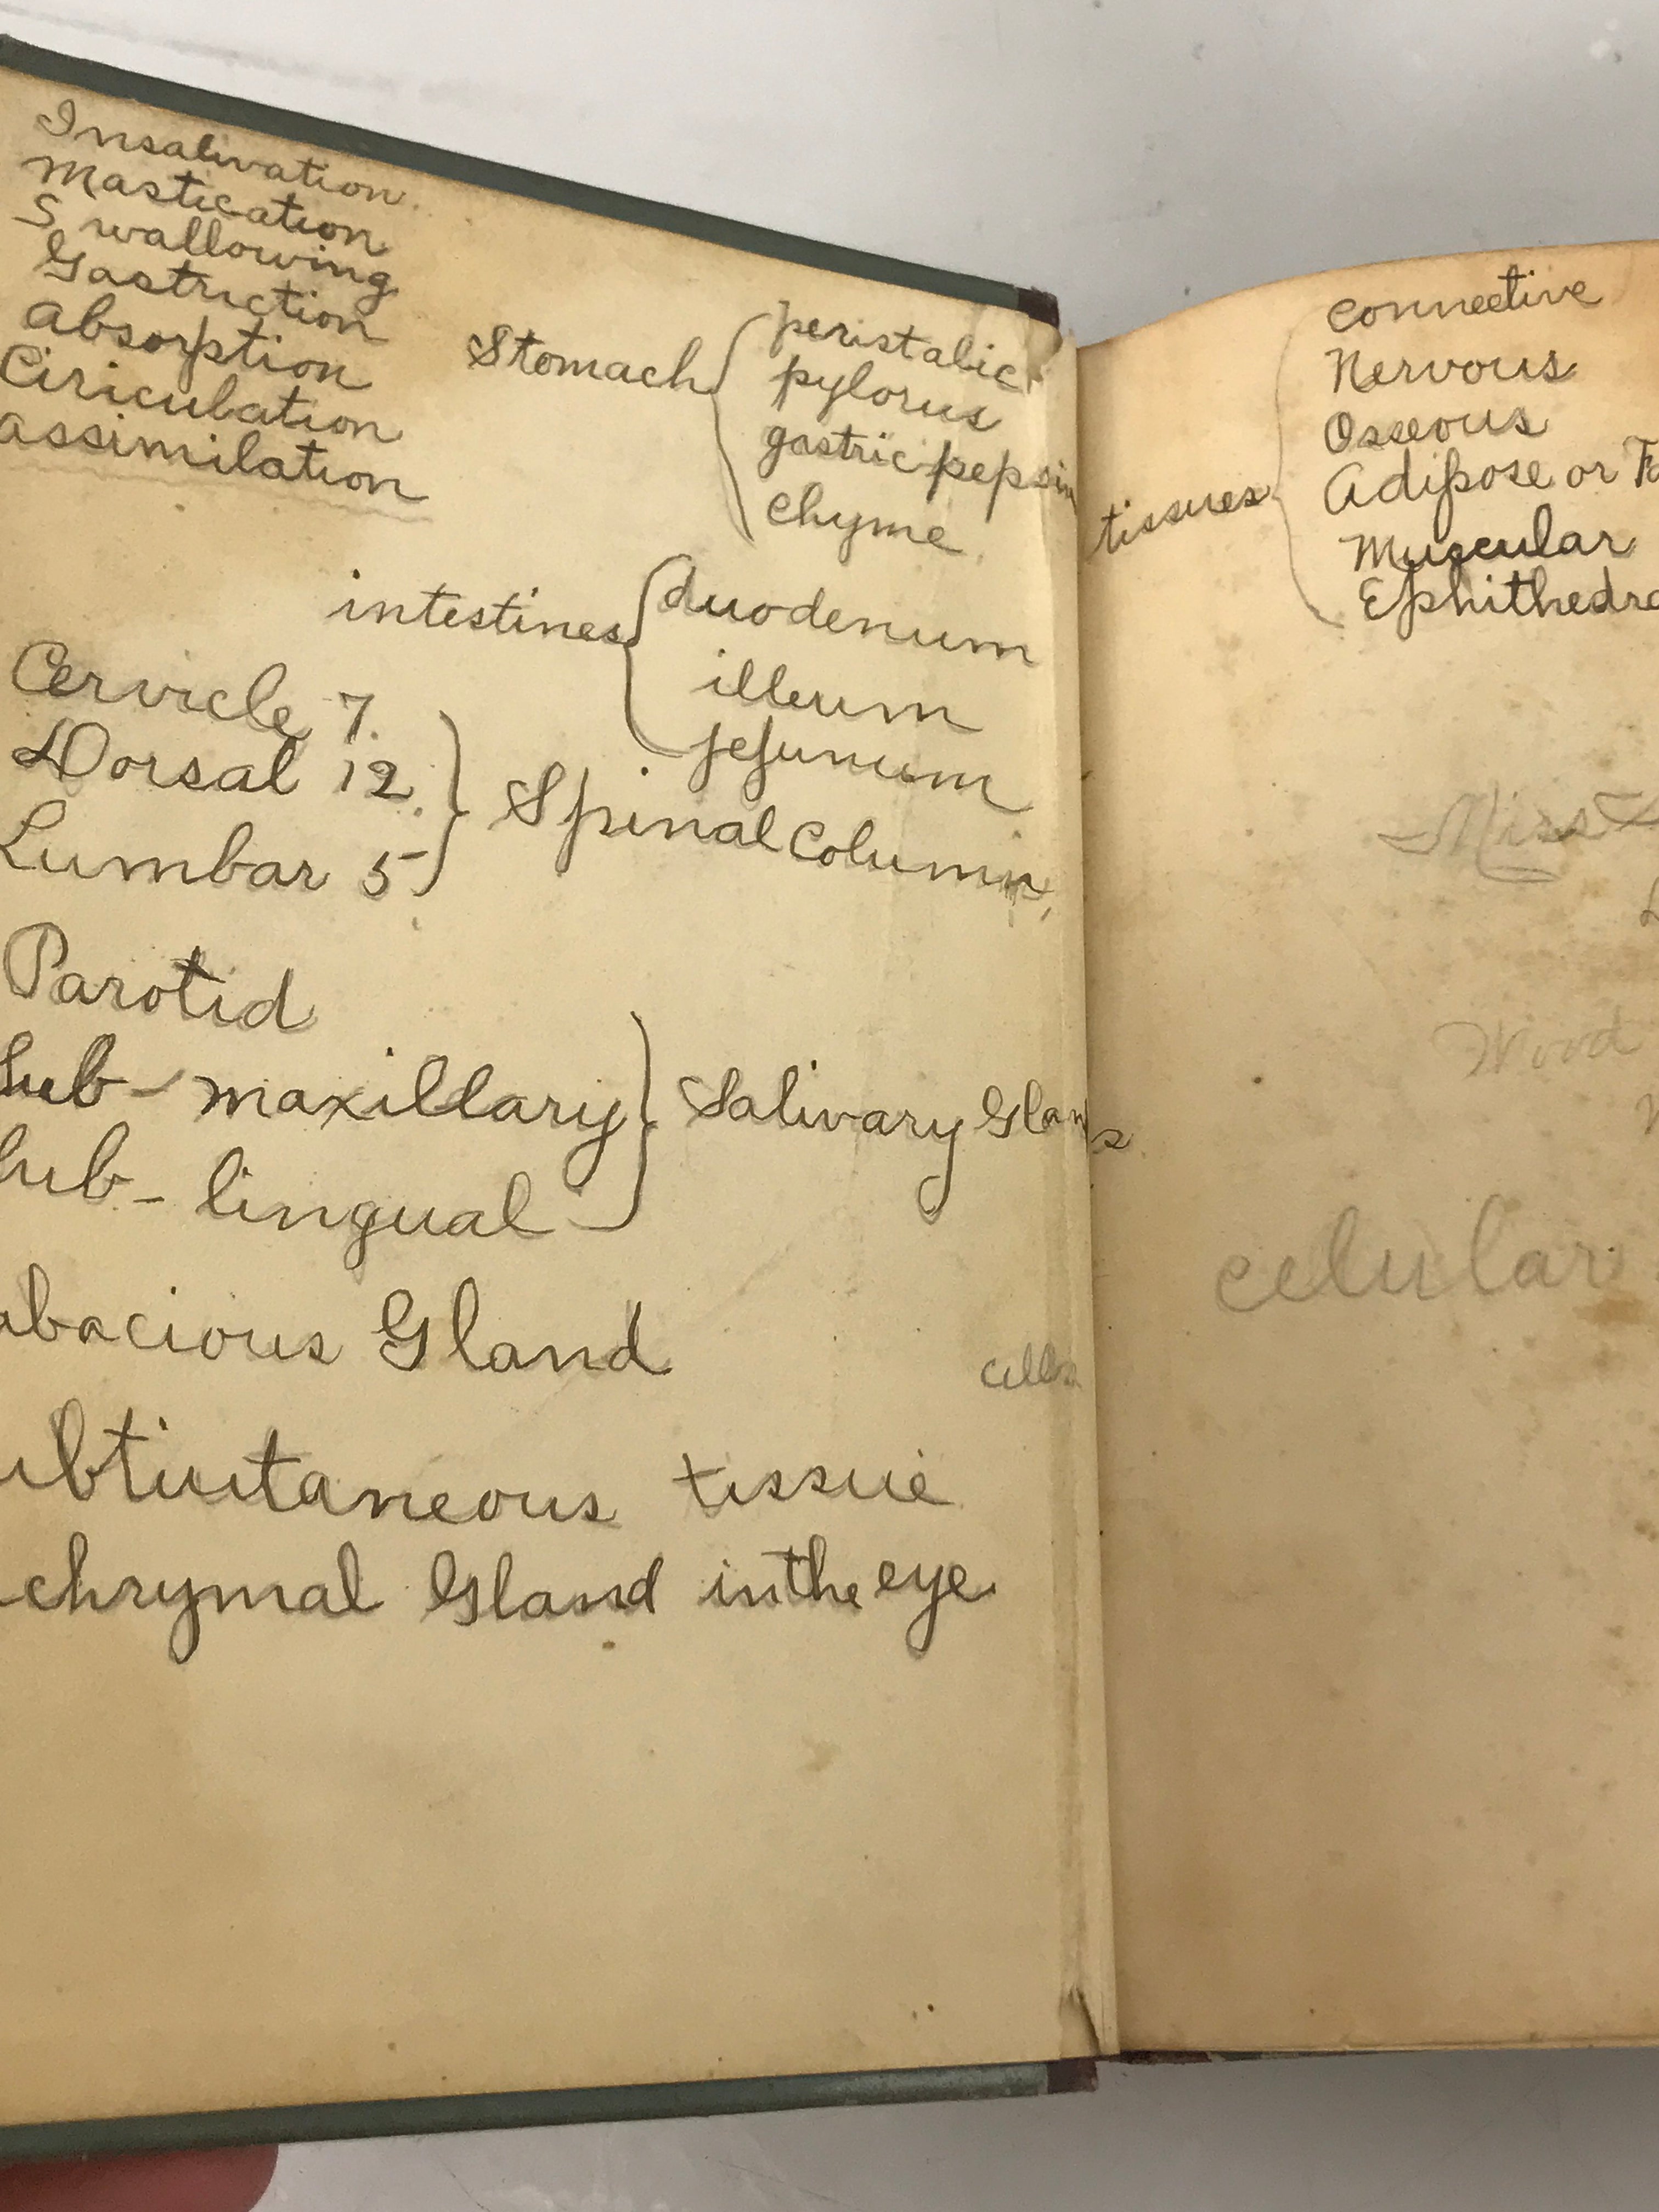 Insalivation
Mastication
Swallowing
Gastriction
Absorption
Ciriculation
Assimilation
Stomach { peristalic
pylorus
gastric pepsin
chyme
intestines { duodenum
illeum
jejunum
Cervicle 7.
Dorsal 12.
Lumbar 5 } Spinal Column
Parotid
Sub-maxillary
Sub-lingual } Salivary Glands
abacious Gland
cells
ubtiutaneous tissue
chrymal Gland in the eye
tissues { connective
Nervous
Osseous
Adipose or Fa
Muscular
Ephithedra
Miss
Wood
celular